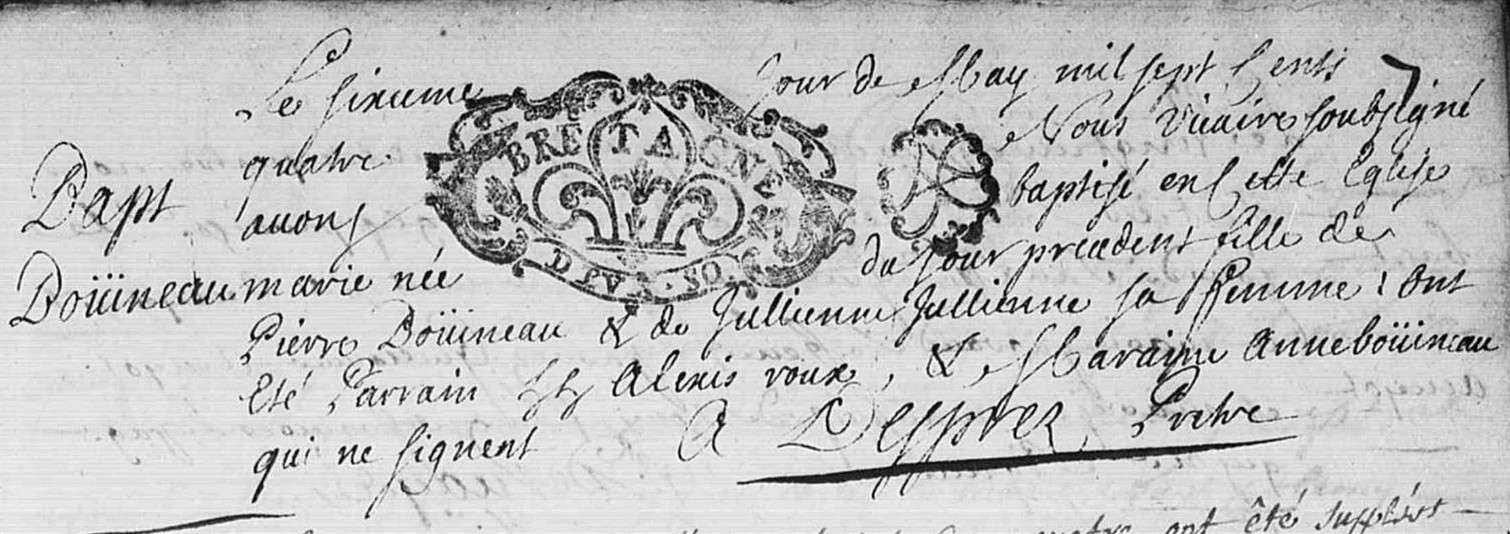 Le sixieme jour de May mil sept Cents
quatre Nous Vicaire soubsigné
Bapt avons baptisé en Cette Eglise
Boüineau marie née du jour precedent fille de
Pierre Boüineau & de Jullienne Jullienne sa femme ; ont
Eté Parrain Alexis roux, & Maraine Anne boüineau
qui ne signent A Desprez Pretre
BRETAGNE
DEUX SO.
ont été suppléés